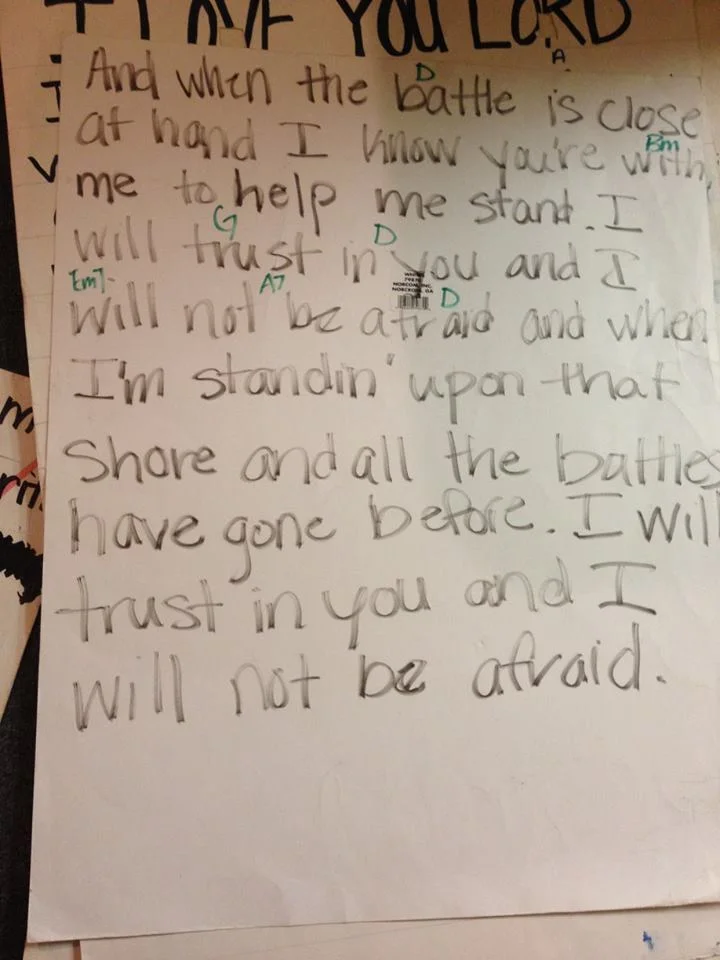 I LOVE YOU LORD
A
D
And when the battle is close
at hand I know you're with
Bm
me to help me stand. I
G D
will trust in you and I
Em7 A7 D
will not be afraid and when
I'm standin' upon that
shore and all the battles
have gone before. I will
trust in you and I
will not be afraid.